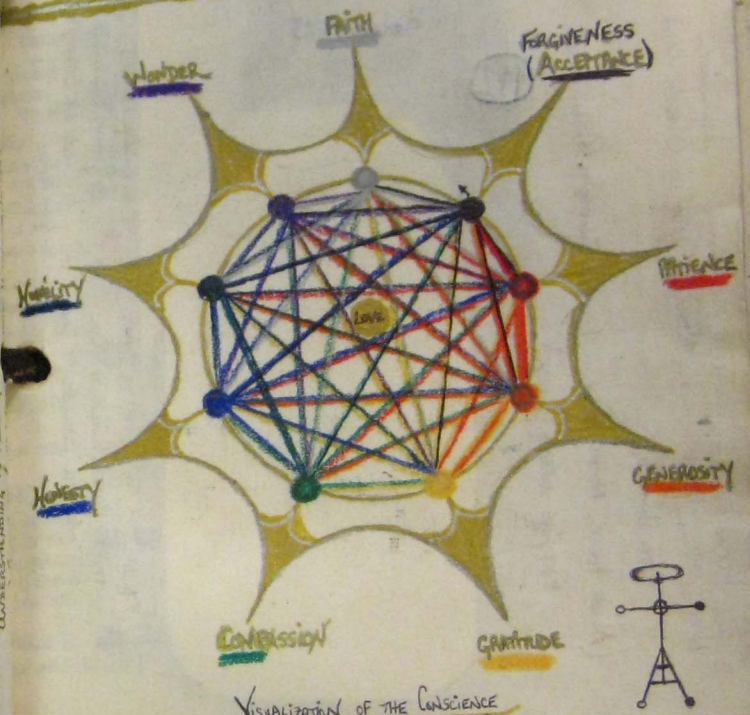 FAITH
FORGIVENESS
(ACCEPTANCE)
WONDER
HUMILITY
PATIENCE
LOVE
HONESTY
GENEROSITY
COMPASSION
GRATITUDE
VISUALIZATION OF THE CONSCIENCE
UNDERSTANDING